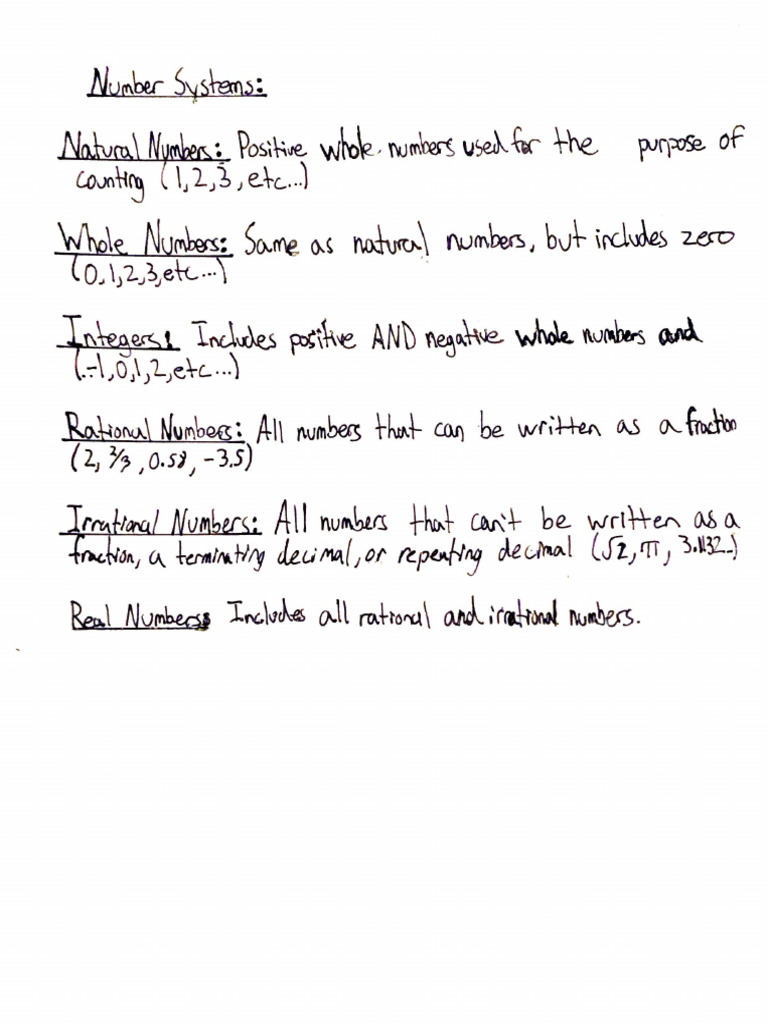 Number Systems:
Natural Numbers: Positive whole numbers used for the purpose of
counting (1, 2, 3, etc...)
Whole Numbers: Same as natural numbers, but includes zero
(0, 1, 2, 3, etc...)
Integers: Includes positive AND negative whole numbers and
(.-1, 0, 1, 2, etc...)
Rational Numbers: All numbers that can be written as a fraction
(2, 2/3, 0.58, -3.5)
Irrational Numbers: All numbers that can't be written as a
fraction, a terminating decimal, or repeating decimal (√2, π, 3.1132..)
Real Numbers: Includes all rational and irrational numbers.